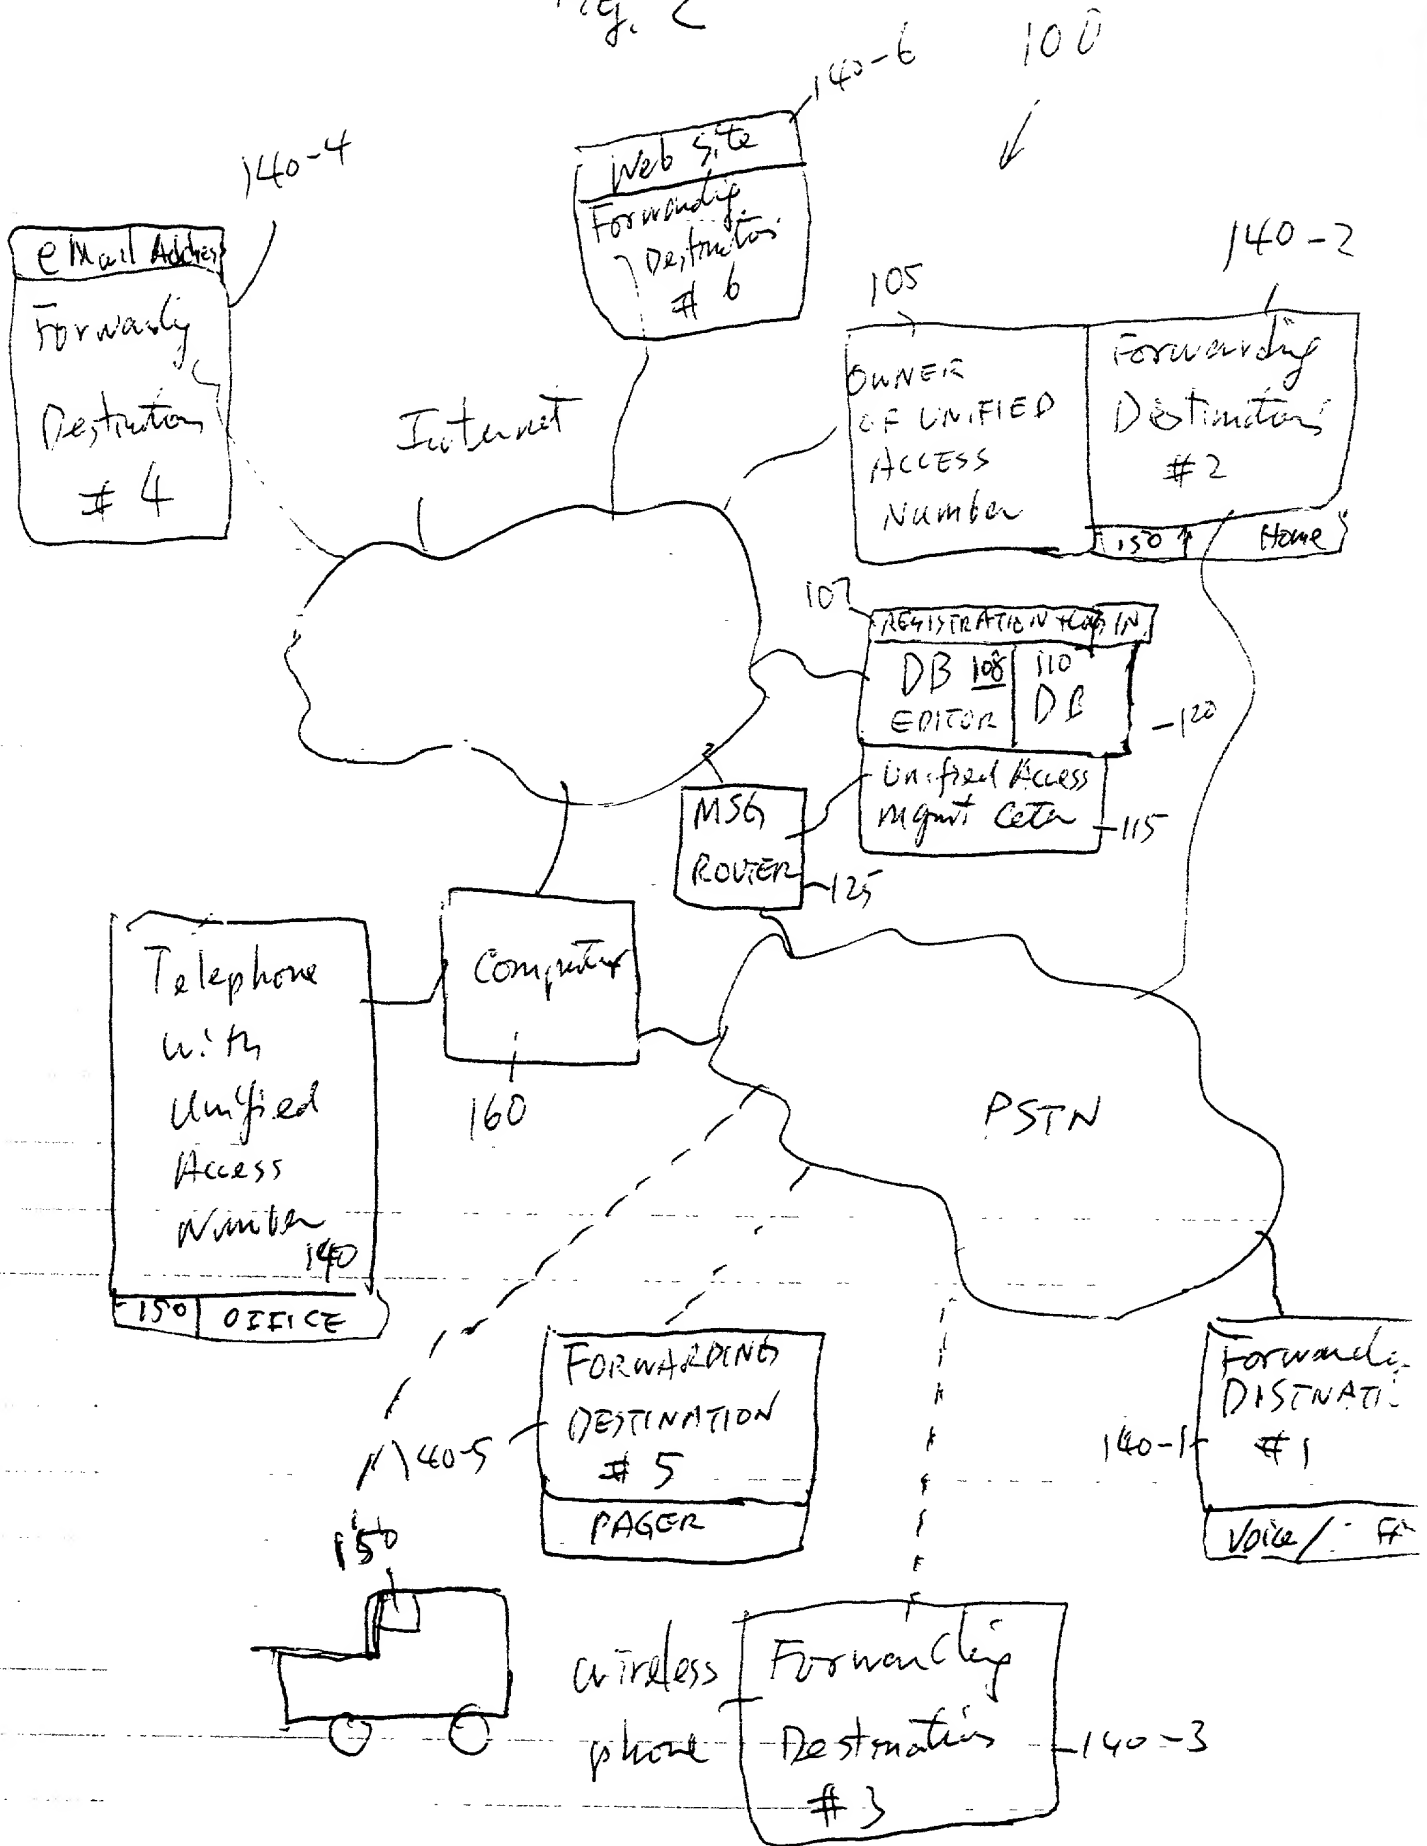 Fig. 2
100
140-6
Web Site
Forwarding
Destination
# 6
140-4
eMail Address
Forwarding
Destination
# 4
Internet
105
OWNER
OF UNIFIED
ACCESS
Number
140-2
Forwarding
Destination
#2
150
Home
107
REGISTRATION + LOG IN
DB 108
EDITOR
110
DB
120
Unified Access
Mgmt
115
MSG
ROUTER
125
Computer
160
Telephone
with
Unified
Access
Number
140
150
OFFICE
PSTN
FORWARDING
DESTINATION
# 5
140-5
PAGER
140-1
#1
Voice/
150
wireless
phone
Forwarding
Destination
#3
140-3